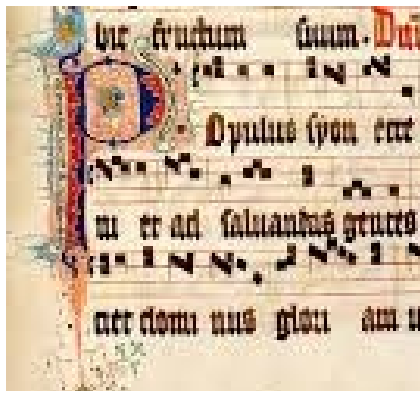 bit fructum suum.
POpulus syon ecce
ni et ad saluandas gentes
net domi nus glori am u